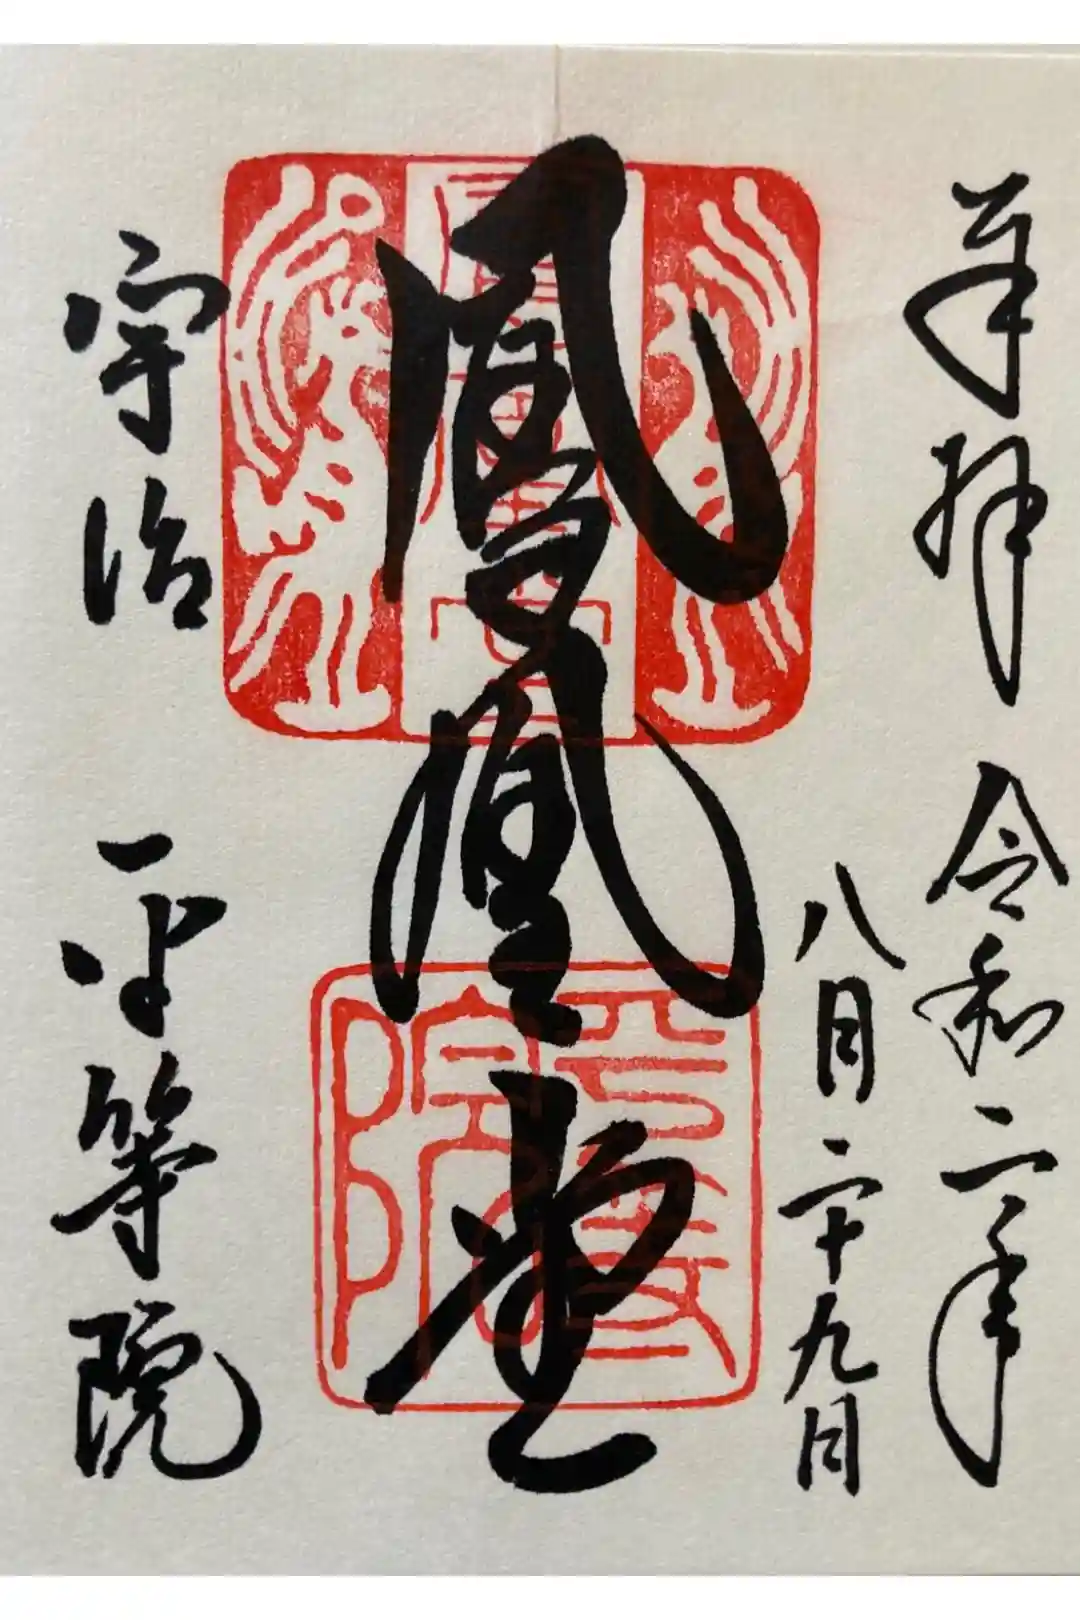 奉拝 令和二年
八月二十九日
鳳凰堂
宇治 平等院
平等院